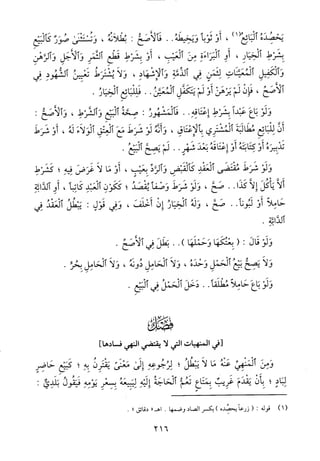 يَحْصِدَهُ الْبَائِعُ(١)، أَوْ ثَوْباً وَيَخِيطَهُ.. فَالأَصَحُّ: بُطْلاَنُهُ، وَتُسْتَثْنَى صُوَرٌ كَالْبَيْعِ
بِشَرْطِ الْخِيَارِ، أَوِ الْبَرَاءَةِ مِنَ الْعَيْبِ، أَوْ بِشَرْطِ قَطْعِ الثَّمَرِ وَالأَجَلِ وَالرَّهْنِ
وَالْكَفِيلِ الْمُعَيَّنَاتِ لِثَمَنٍ فِي الذِّمَّةِ وَالإِشْهَادِ، وَلاَ يُشْتَرَطُ تَعْيِينُ الشُّهُودِ فِي
الأَصَحِّ، فَإِنْ لَمْ يَرْهَنْ أَوْ لَمْ يَتَكَفَّلِ الْمُعَيَّنُ.. فَلِلْبَائِعِ الْخِيَارُ.
وَلَوْ بَاعَ عَبْداً بِشَرْطِ إِعْتَاقِهِ.. فَالْمَشْهُورُ: صِحَّةُ الْبَيْعِ وَالشَّرْطِ، وَالأَصَحُّ:
أَنَّ لِلْبَائِعِ مُطَالَبَةَ الْمُشْتَرِي بِالإِعْتَاقِ، وَأَنَّهُ لَوْ شَرَطَ مَعَ الْعِتْقِ الْوَلاَءَ لَهُ، أَوْ شَرَطَ
تَدْبِيرَهُ أَوْ كِتَابَتَهُ أَوْ إِعْتَاقَهُ بَعْدَ شَهْرٍ.. لَمْ يَصِحَّ الْبَيْعُ.
وَلَوْ شَرَطَ مُقْتَضَى الْعَقْدِ كَالْقَبْضِ وَالرَّدِّ بِعَيْبٍ، أَوْ مَا لاَ غَرَضَ فِيهِ؛ كَشَرْطِ
أَلاَّ يَأْكُلَ إِلاَّ كَذَا.. صَحَّ، وَلَوْ شَرَطَ وَصْفاً يُقْصَدُ؛ كَكَوْنِ الْعَبْدِ كَاتِباً، أَوِ الدَّابَّةِ
حَامِلاً أَوْ لَبُوناً.. صَحَّ، وَلَهُ الْخِيَارُ إِنْ أَخْلَفَ، وَفِي قَوْلٍ: يَبْطُلُ الْعَقْدُ فِي
الدَّابَّةِ.
وَلَوْ قَالَ: (بِعْتُكَهَا وَحَمْلَهَا).. بَطَلَ فِي الأَصَحِّ.
وَلاَ يَصِحُّ بَيْعُ الْحَمْلِ وَحْدَهُ، وَلاَ الْحَامِلِ دُونَهُ، وَلاَ الْحَامِلِ بِحُرٍّ.
وَلَوْ بَاعَ حَامِلاً مُطْلَقاً.. دَخَلَ الْحَمْلُ فِي الْبَيْعِ.
فَصْلٌ
[في المنهيات التي لا يقتضي النهي فسادها]
وَمِنَ الْمَنْهِيِّ عَنْهُ مَا لاَ يَبْطُلُ؛ لِرُجُوعِهِ إِلَىٰ مَعْنىً يَقْتَرِنُ بِهِ؛ كَبَيْعِ حَاضِرٍ
لِبَادٍ؛ بِأَنْ يَقْدَمَ غَرِيبٌ بِمَتَاعٍ تَعُمُّ الْحَاجَةُ إِلَيْهِ لِيَبِيعَهُ بِسِعْرِ يَوْمِهِ فَيَقُولُ بَلَدِيٌّ:
(١) قوله: (زرعاً يحصده) بكسر الصاد وضمها. اهـ «دقائق».
٢١٦